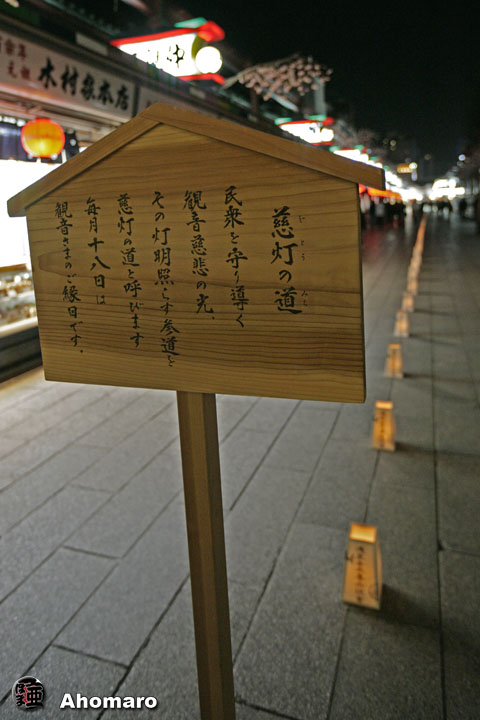 慈灯の道
じとう みち
民衆を守り導く
観音慈悲の光、
その灯明照らす参道を
慈灯の道と呼びます
毎月十八日は
観音さまのご縁日です。
木村家本店
元祖
Ahomaro